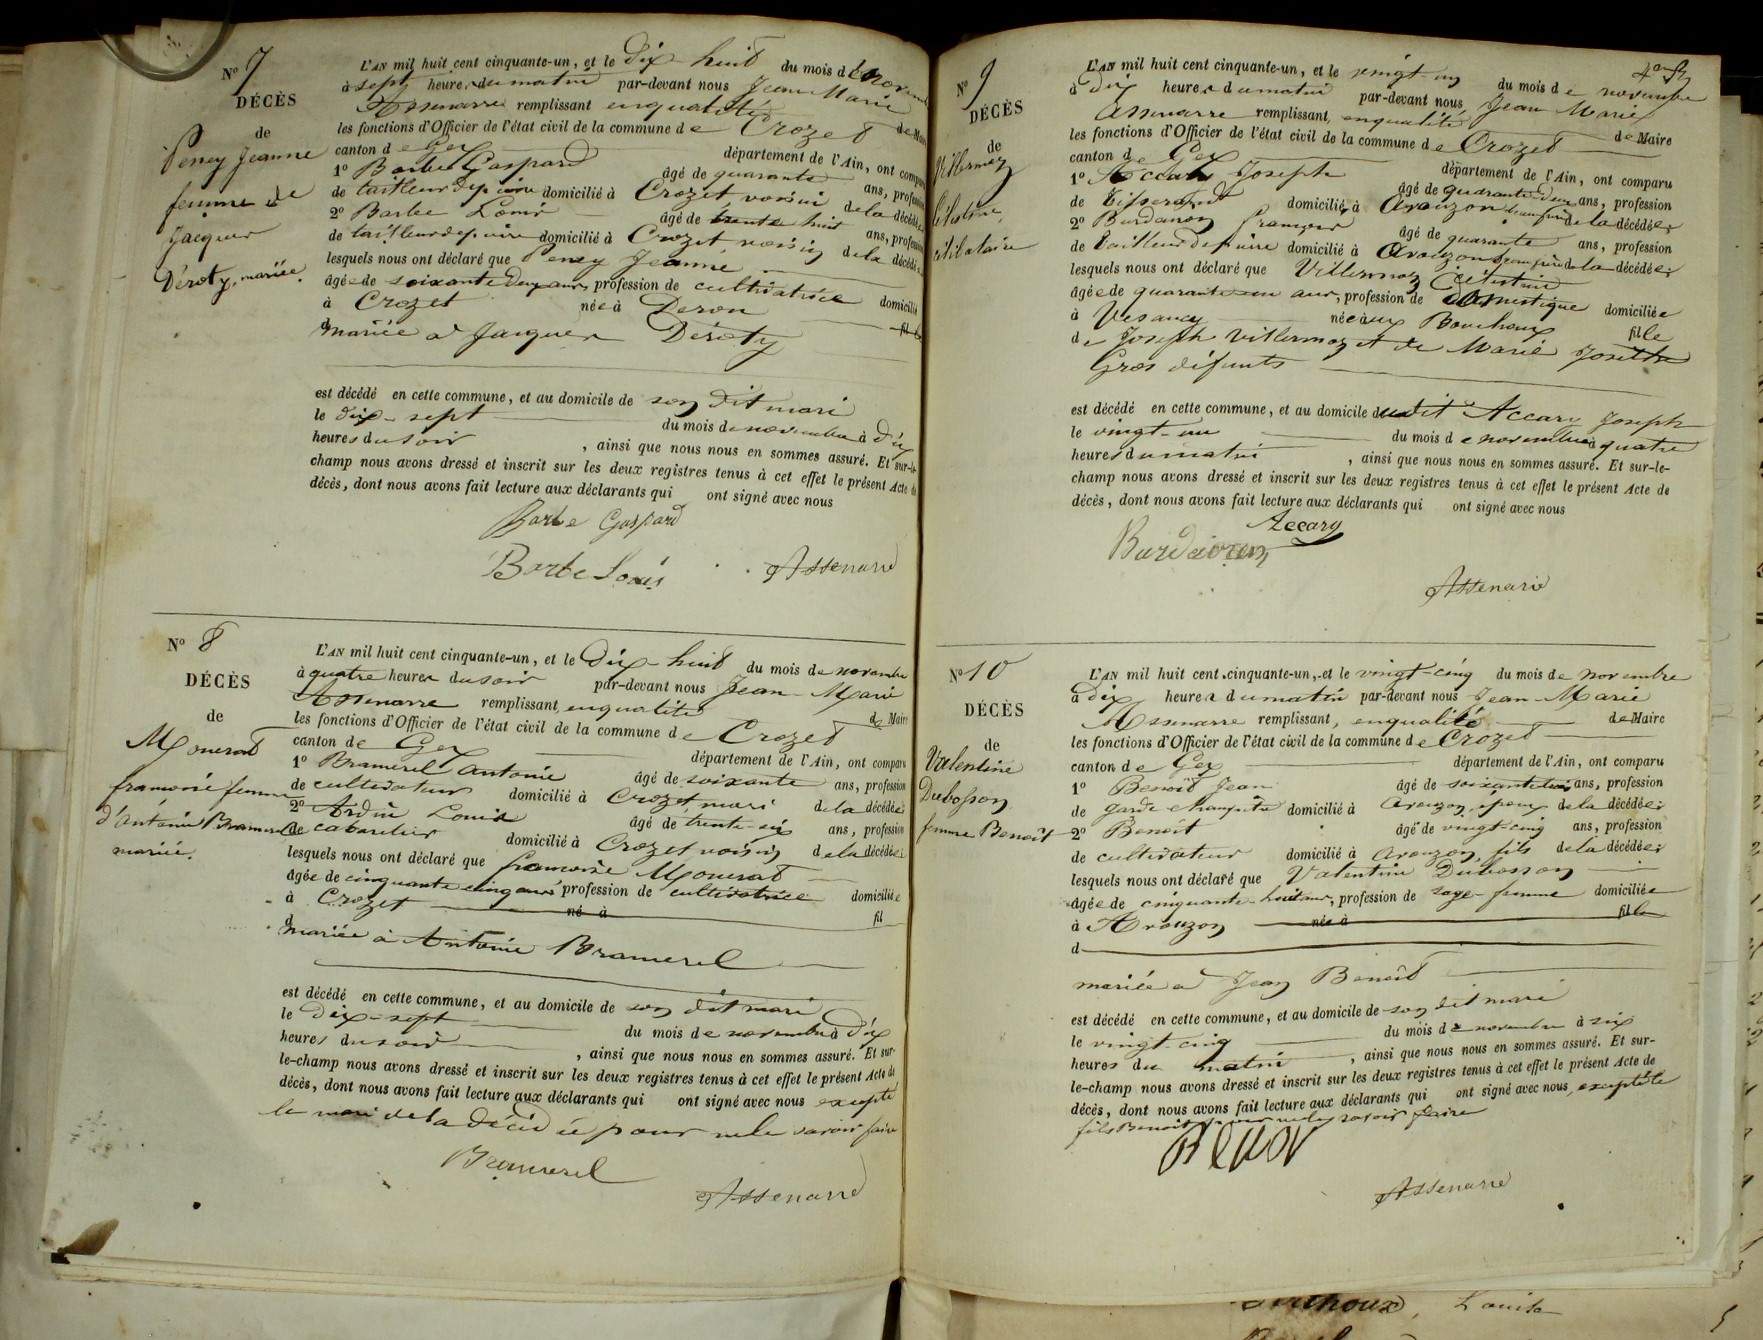 N° 7
DÉCÈS
de
Peney Jeanne
femme de
Jacques
Déroty, mariée.
L'AN mil huit cent cinquante-un, et le Dix-huit du mois de Novembre
à sept heures du matin par-devant nous Jean Marie
Assenarre remplissant en qualité de Maire
les fonctions d'Officier de l'état civil de la commune de Crozet
canton de Gex département de l'Ain, ont comparu
1° Barbe Gaspard âgé de quarante ans, profession
de tailleur de pierre domicilié à Crozet voisin de la décédée
2° Barbe Louis âgé de trente huit ans, profession
de tailleur de pierre domicilié à Crozet voisin de la décédée
lesquels nous ont déclaré que Peney Jeanne
âgée de soixante deux ans, profession de cultivatrice domiciliée
à Crozet née à Peron fille
d mariée à Jacques Déroty
est décédé en cette commune, et au domicile de son dit mari
le dix-sept du mois de novembre à dix
heures du soir, ainsi que nous nous en sommes assuré. Et sur-le-
champ nous avons dressé et inscrit sur les deux registres tenus à cet effet le présent Acte de
décès, dont nous avons fait lecture aux déclarants qui ont signé avec nous
Barbe Gaspard
Barbe Louis Assenarre
N° 8
DÉCÈS
de
Mounrad
françoise femme
d'Antoine Bramerel
mariée.
L'AN mil huit cent cinquante-un, et le Dix-huit du mois de novembre
à quatre heures du soir par-devant nous Jean-Marie
Assenarre remplissant, en qualité de Maire
les fonctions d'Officier de l'état civil de la commune de Crozet
canton de Gex département de l'Ain, ont comparu
1° Bramerel Antoine âgé de soixante ans, profession
de cultivateur domicilié à Crozet mari de la décédée
2° Ardin Louis âgé de trente-six ans, profession
de cabaretier domicilié à Crozet voisin de la décédée
lesquels nous ont déclaré que françoise
âgée de cinquante cinq ans profession de cultivatrice domiciliée
à Crozet né à fil
d mariée à Antoine Bramerel
est décédé en cette commune, et au domicile de son dit mari
le Dix-sept du mois de novembre à Dix
heures du soir, ainsi que nous nous en sommes assuré. Et sur-
le-champ nous avons dressé et inscrit sur les deux registres tenus à cet effet le présent Acte de
décès, dont nous avons fait lecture aux déclarants qui ont signé avec nous excepté
le mari de la décédée pour ne le savoir faire
Bramerel
Assenarre
N° 9
DÉCÈS
de
Villermoz
Célestine,
célibataire
L'AN mil huit cent cinquante-un, et le vingt-un du mois de novembre
à Dix heures du matin par-devant nous Jean Marie
Assenarre remplissant, en qualité de Maire
les fonctions d'Officier de l'état civil de la commune de Crozet
canton de Gex département de l'Ain, ont comparu
1° Accary Joseph âgé de quarante deux ans, profession
de Tisserand domicilié à Avouzon beau frère de la décédée
2° Burdairon françois âgé de quarante ans, profession
de tailleur de pierre domicilié à Avouzon beau frère de la décédée
lesquels nous ont déclaré que Villermoz Célestine
âgée de quarante un ans, profession de domestique domiciliée
à Vesancy née aux Bouchoux fille
de Joseph Villermoz et de Marie Josette
Gros défunts
est décédé en cette commune, et au domicile dudit Accary Joseph
le vingt-un du mois de novembre à quatre
heures du matin, ainsi que nous nous en sommes assuré. Et sur-le-
champ nous avons dressé et inscrit sur les deux registres tenus à cet effet le présent Acte de
décès, dont nous avons fait lecture aux déclarants qui ont signé avec nous
Accary
Burdairon
Assenarre
N° 10
DÉCÈS
de
Valentine
Dubosson
femme Benoît
L'AN mil huit cent cinquante-un, et le vingt-cinq du mois de novembre
à Dix heures du matin par-devant nous Jean-Marie
Assenarre remplissant, en qualité de Maire
les fonctions d'Officier de l'état civil de la commune de Crozet
canton de Gex département de l'Ain, ont comparu
1° Benoît Jean âgé de ans, profession
de garde champêtre domicilié à Avouzon, époux de la décédée
2° Benoît âgé de vingt-cinq ans, profession
de cultivateur domicilié à Avouzon, fils de la décédée
lesquels nous ont déclaré que Valentine Dubosson
âgée de cinquante-huit ans, profession de sage-femme domiciliée
à Avouzon née à fille
d
mariée à Jean Benoît
est décédé en cette commune, et au domicile de son dit mari
le vingt-cinq du mois de novembre à six
heures du matin, ainsi que nous nous en sommes assuré. Et sur-
le-champ nous avons dressé et inscrit sur les deux registres tenus à cet effet le présent Acte de
décès, dont nous avons fait lecture aux déclarants qui ont signé avec nous, excepté le
fils Benoît pour ne le savoir faire
Benoi
Assenarre
Louise